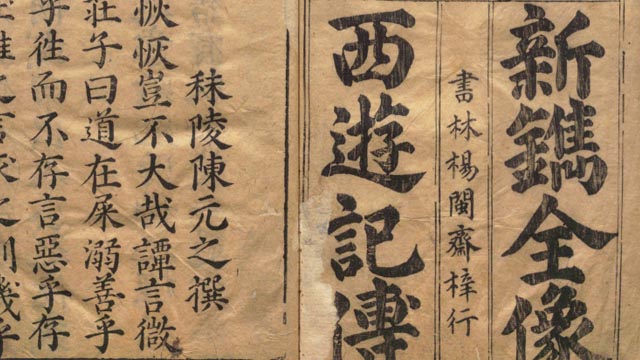 新鐫全像
書林楊閩齋梓行
西遊記傳
秣陵陳元之撰
恢恢豈不大哉譚言微
莊子曰道在屎溺善乎
乎徃而不存言惡乎存
之言求之則幾乎